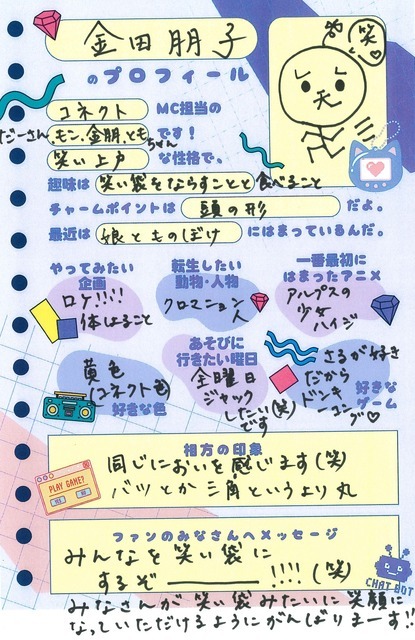 金田朋子
のプロフィール
笑
コネクト MC担当の
だーさん、モン、金朋、ともちゃん です!
笑い上戸 な性格で、
趣味は 笑い袋をならすことと食べること
チャームポイントは 頭の形 だよ。
最近は 娘とものぼけ にはまっているんだ。
やってみたい
企画
ロケ!!!!
体はること
転生したい
動物・人物
クロマニョン
人
一番最初に
はまったアニメ
アルプスの
少女
ハイジ
黄色
(コネクト色)
好きな色
あそびに
行きたい曜日
全曜日
ジャック
したい(笑)
です
さるが好き
だから
ドンキー
コング
好きな
ゲーム
相方の印象
同じにおいを感じます(笑)
バツとか三角というより丸
PLAY GAME?
ファンのみなさんへメッセージ
みんなを笑い袋に
するぞ――!!!!(笑)
CHAT BOT
みなさんが笑い袋みたいに笑顔に
なっていただけるようにがんばりまーす!!